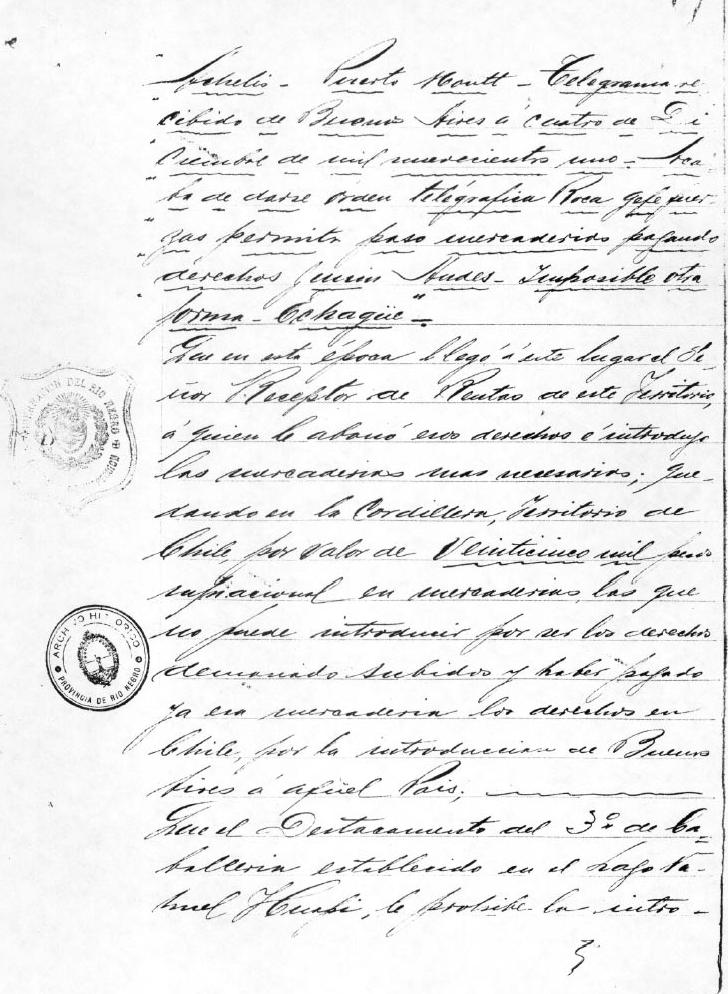 "Achelis - Puerto Montt - Telegrama re
"cibido de Buenos Aires a cuatro de Di
"ciembre de mil novecientos uno - Aca
"ba de darse orden telégrafica Roca gefe fuer
"zas permita paso mercaderias pagando
"derechos Junin Andes - Imposible otra
"forma - Echagüe" -
Que en esta época llegó á este lugar el Se-
ñor Receptor de Rentas de este Territorio,
á quien le abonó esos derechos é introdujo
las mercaderias mas necesarias; que-
dando en la Cordillera, Territorio de
Chile, por valor de Veinticinco mil pesos
m/nacional en mercaderias, las que
no puede introducir por ser los derechos
demasiado subidos y haber pagado
ya esa mercaderia los derechos en
Chile, por la introduccion de Buenos
Aires á aquel Pais;
Que el Destacamento del 3º de Ca-
balleria establecido en el Lago Na-
huel Huapi, le prohibe la intro-
GOBERNACION DEL RIO NEGRO
ARCHIVO HISTORICO
PROVINCIA DE RIO NEGRO